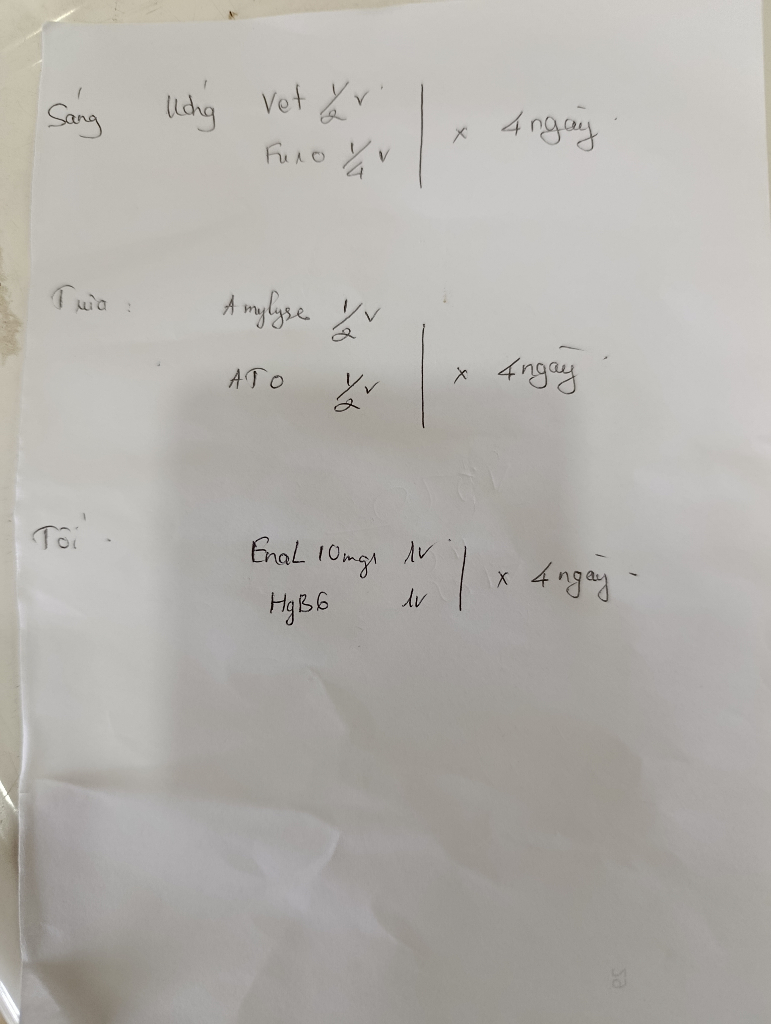 Sáng Uống Vet 1/2 v
Furo 1/4 v | x 4 ngày
Trưa : Amylyse 1/2 v
ATO 1/2 v | x 4 ngày
Tối Enal 10mg 1v
HgB6 1v | x 4 ngày